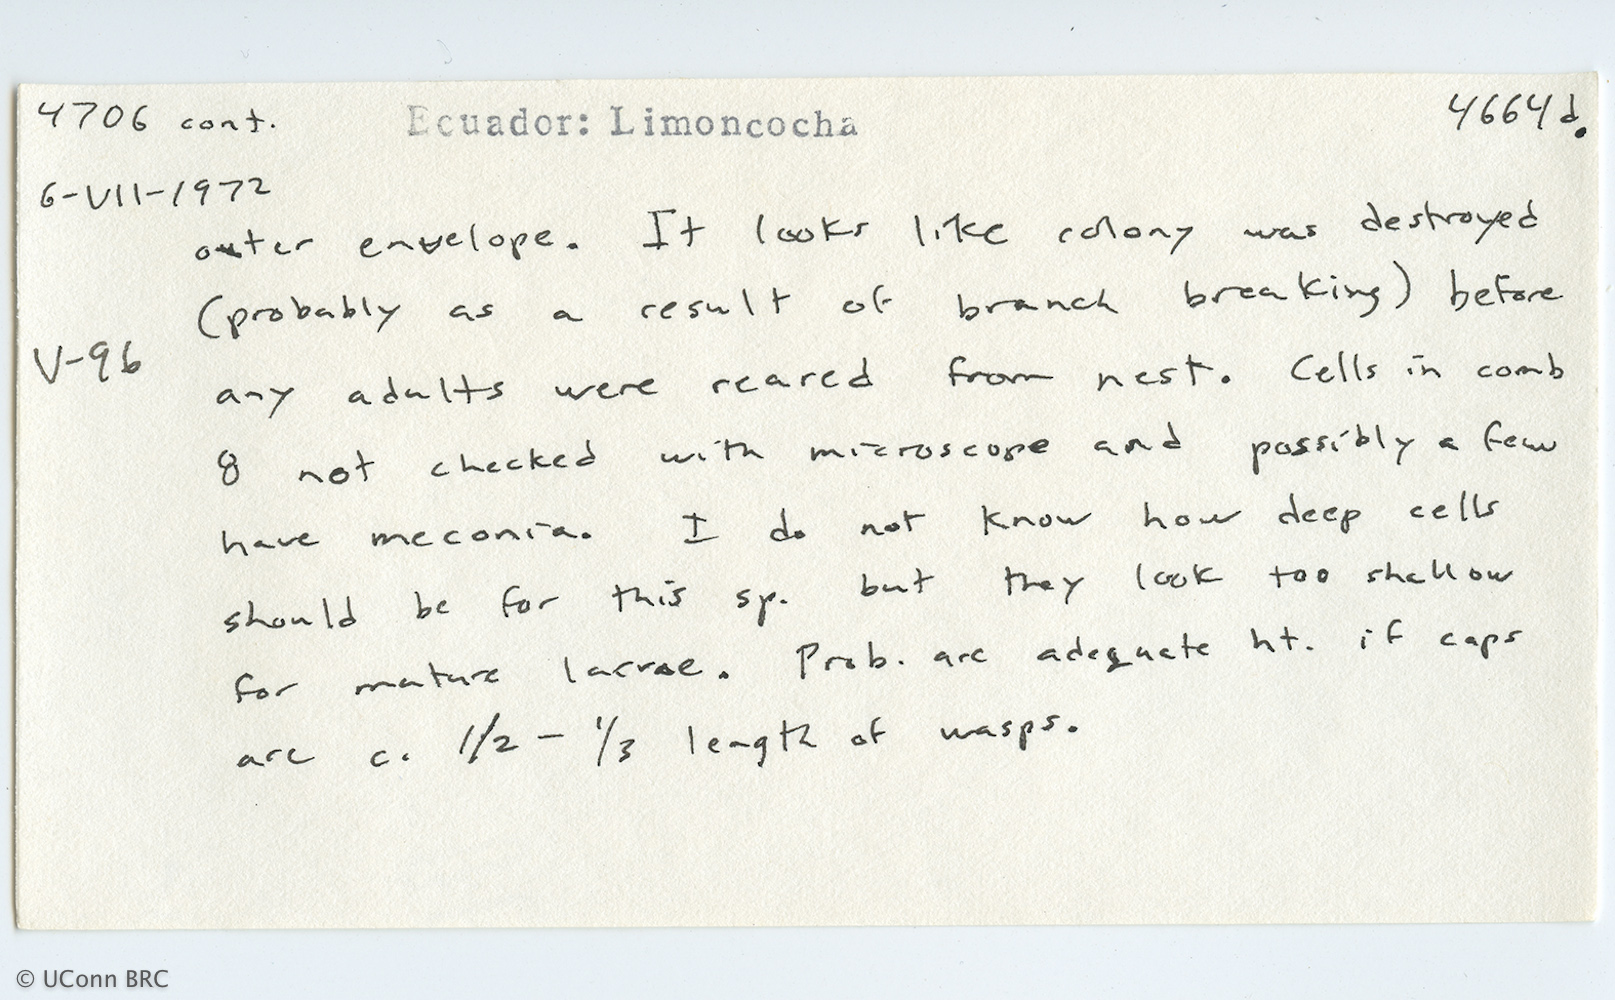 4706 cont. Ecuador: Limoncocha 4664d.
6-VII-1972
outer envelope. It looks like colony was destroyed
(probably as a result of branch breaking) before
V-96
any adults were reared from nest. Cells in comb
8 not checked with microscope and possibly a few
have meconia. I do not know how deep cells
should be for this sp. but they look too shallow
for mature larvae. Prob. are adequate ht. if caps
are c. 1/2 - 1/3 length of wasps.
© UConn BRC